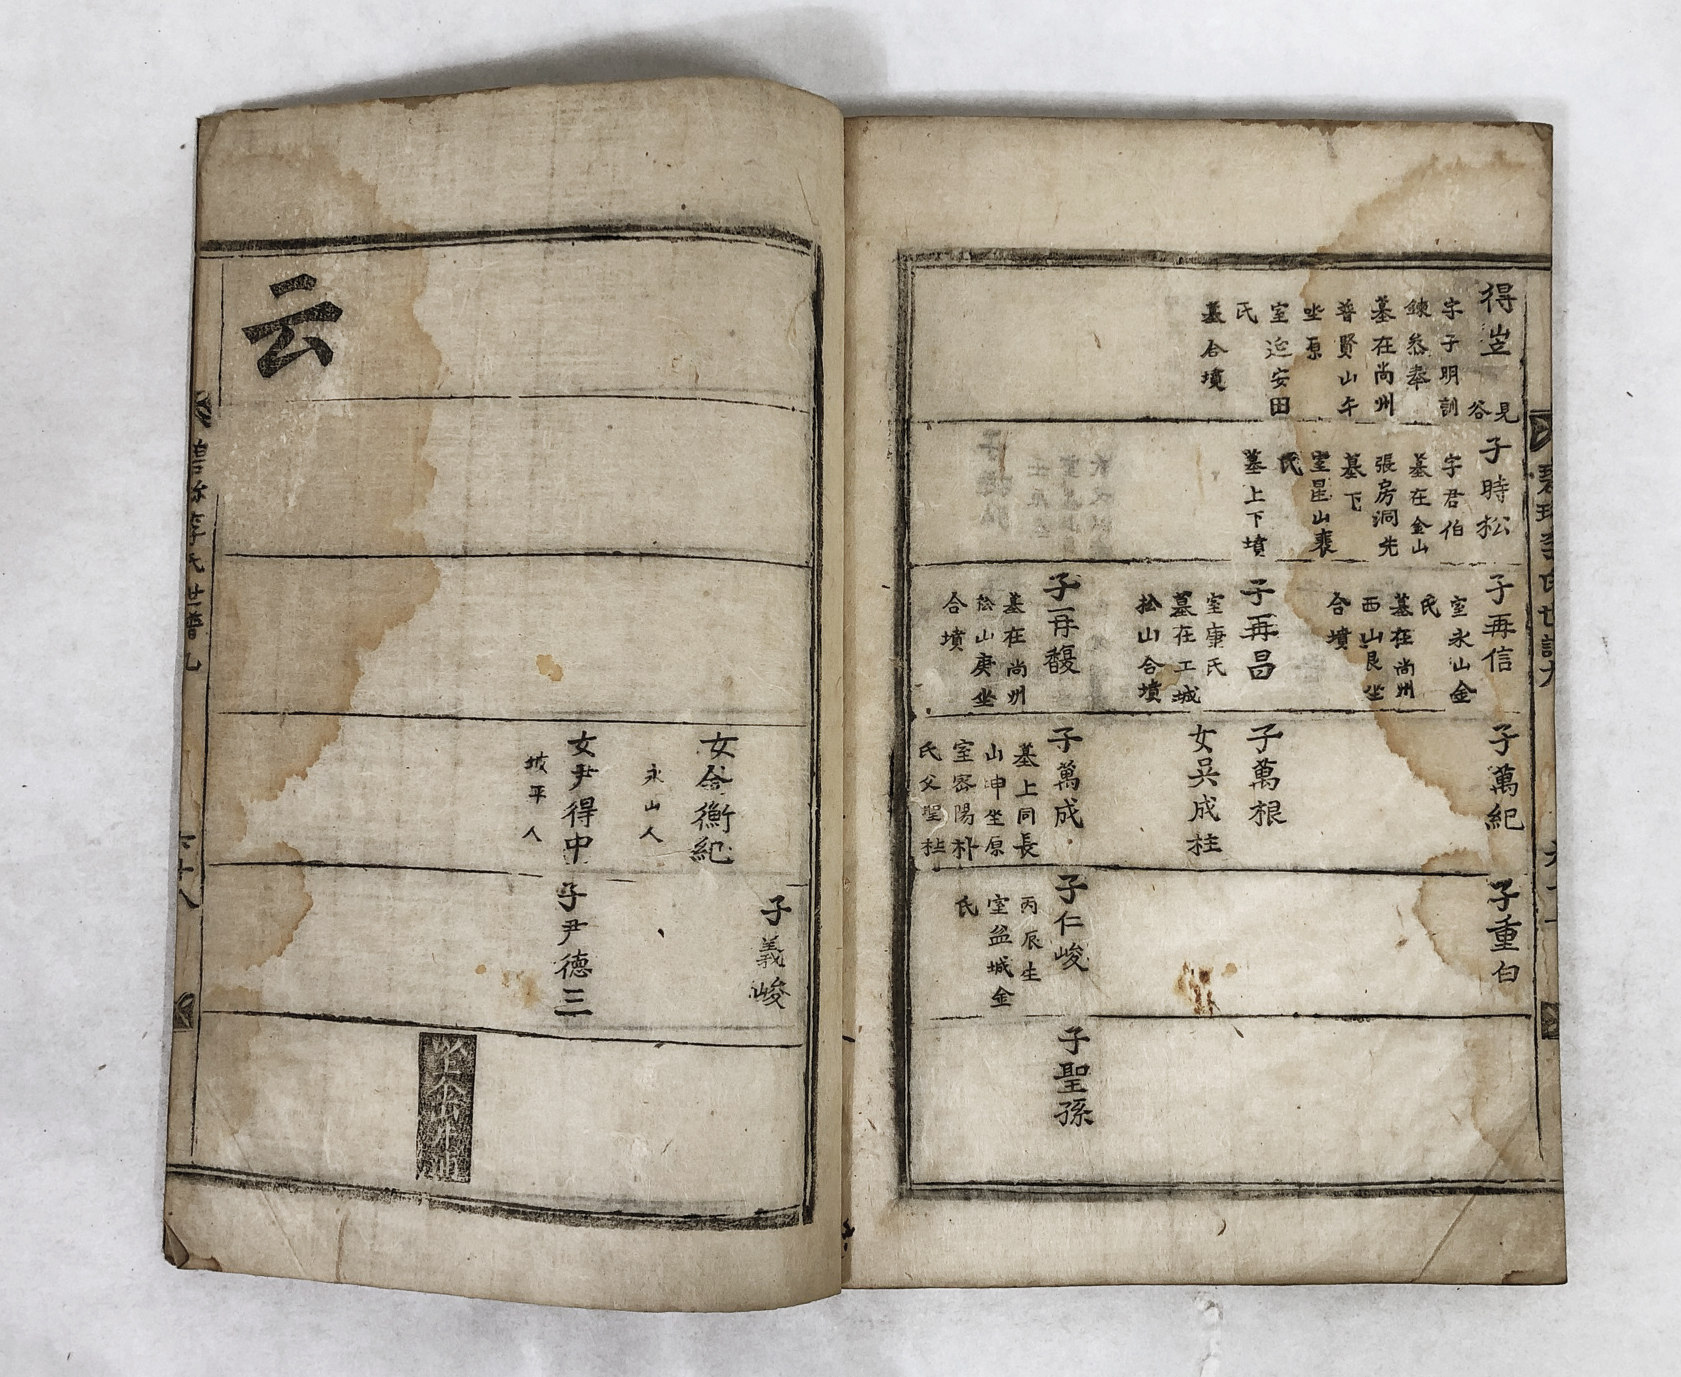 得岦
見谷
字子明訓
鍊叅奉
墓在尚州
普賢山午
坐原
室延安田
氏
墓合墳
子時松
字君伯
墓在金山
張房洞先
墓下
室星山裵
氏
墓上下墳
子再信
室永山金
氏
墓在尚州
西山艮坐
合墳
子再昌
室康氏
墓在工城
松山合墳
子再馥
墓在尚州
松山庚坐
合墳
子萬紀
子萬根
女吳成柱
子萬成
墓上同長
山坤坐原
室密陽朴
氏父聖
子重白
子仁峻
丙辰生
室盆城金
氏
子聖孫
碧珍李氏世譜九
女金衡紀
永山人
女尹得中
坡平人
子義峻
子尹德三
云
碧珍李氏世譜九